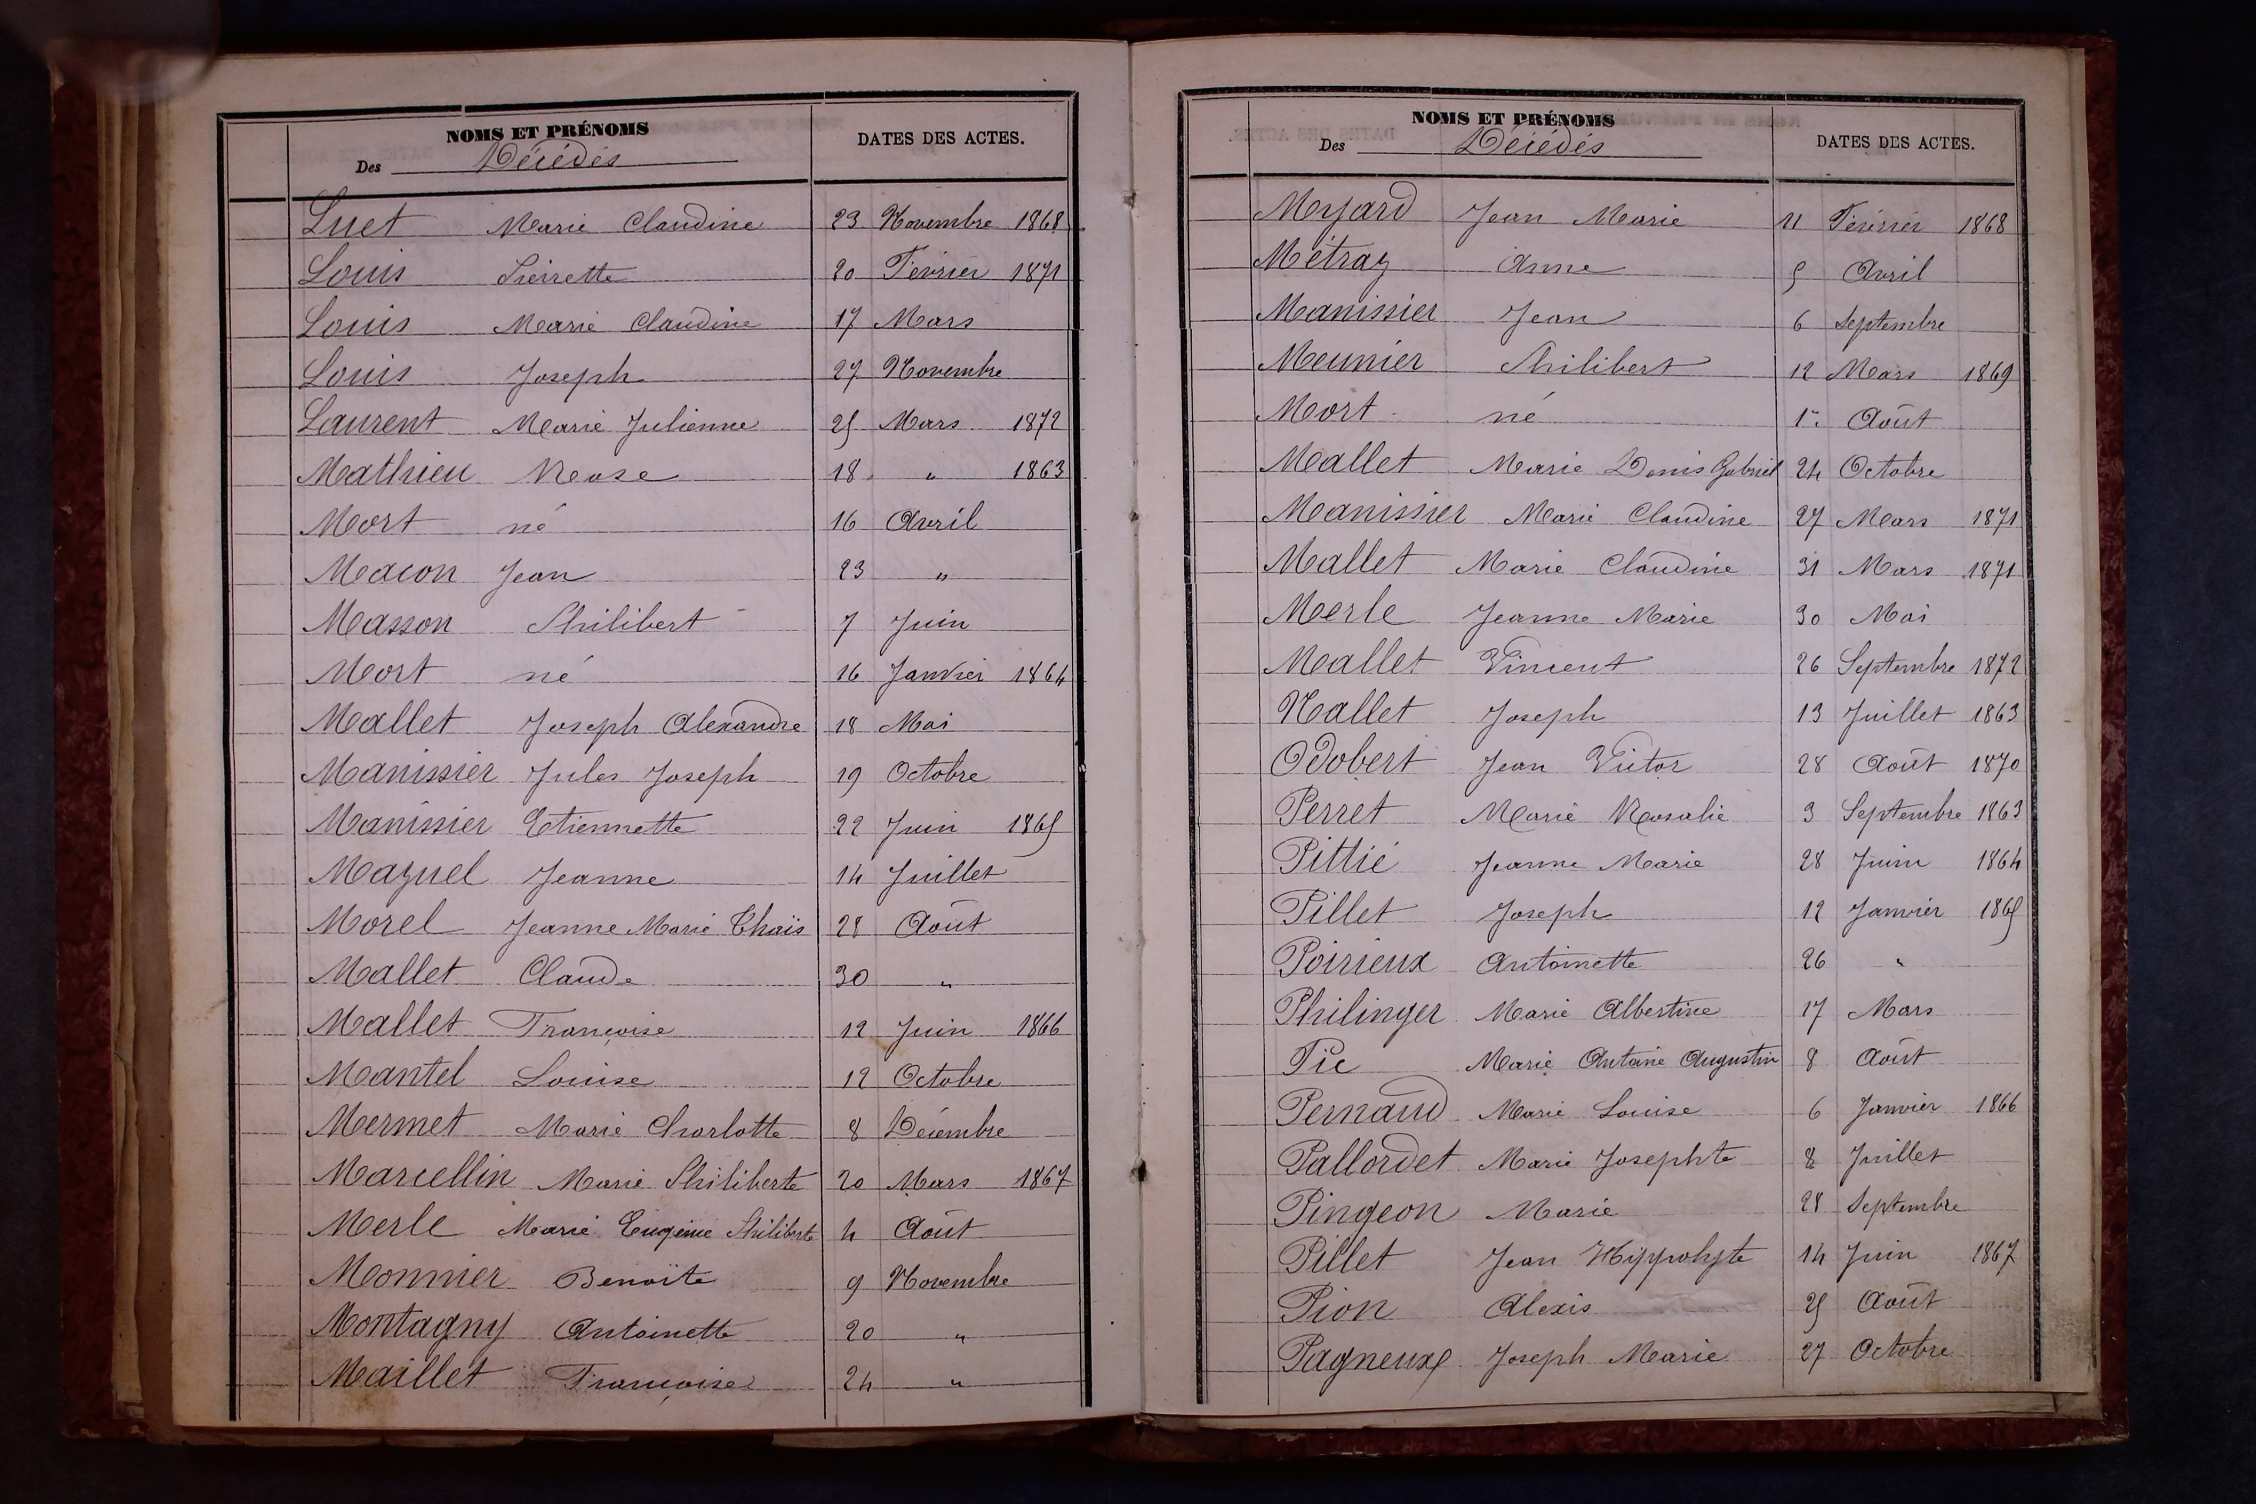 NOMS ET PRÉNOMS
Des Décédés
DATES DES ACTES.
Luet Marie Claudine 23 Novembre 1868
Louis Pierrette 20 Février 1871
Louis Marie Claudine 17 Mars
Louis Joseph 27 Novembre
Laurent Marie Julienne 25 Mars 1872
Mathieu Rose 18 " 1863
Mort né 16 Avril
Macon Jean 23 "
Masson Philibert 7 Juin
Mort né 16 Janvier 1864
Mallet Joseph Alexandre 18 Mai
Manissier Jules Joseph 19 Octobre
Manissier Etiennette 22 Juin 1865
Mazuel Jeanne 14 Juillet
Morel Jeanne Marie Thaïs 28 Août
Mallet Claude 30 "
Mallet Françoise 12 Juin 1866
Mantel Louise 12 Octobre
Mermet Marie Charlotte 8 Décembre
Marcellin Marie Philiberte 20 Mars 1867
Merle Marie Eugénie Philiberte 4 Août
Monnier Benoîte 9 Novembre
Montagny Antoinette 20 "
Maillet Françoise 24 "
NOMS ET PRÉNOMS
Des Décédés
DATES DES ACTES.
Myard Jean Marie 11 Février 1868
Métraz Anne 5 Avril
Manissier Jean 6 Septembre
Meunier Philibert 12 Mars 1869
Mort né 1er Août
Mallet Marie Denis Gabriel 24 Octobre
Manissier Marie Claudine 27 Mars 1871
Mallet Marie Claudine 31 Mars 1871
Merle Jeanne Marie 30 Mai
Mallet Vincent 26 Septembre 1872
Nallet Joseph 13 Juillet 1863
Odobert Jean Victor 28 Août 1870
Perret Marie Rosalie 3 Septembre 1863
Pittié Jeanne Marie 28 Juin 1864
Pillet Joseph 12 Janvier 1865
Poirieux Antoinette 26 "
Philinger Marie Albertine 17 Mars
Pic Marie Antoine Augustin 8 Août
Pernaud Marie Louise 6 Janvier 1866
Pallordet Marie Josephte 8 Juillet
Pingeon Marie 28 Septembre
Pillet Jean Hippolyte 14 Juin 1867
Pion Alexis 25 Août
Pagneux Joseph Marie 27 Octobre